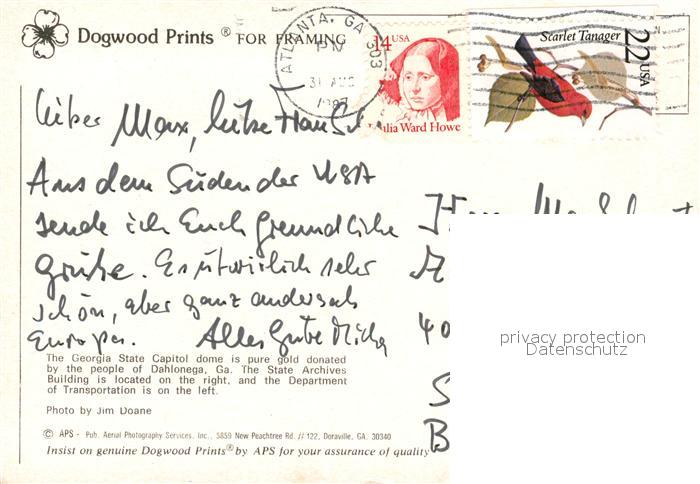 Dogwood Prints ® FOR FRAMING
ATLANTA, GA 303
PM
31 AUG
1987
14 USA
Julia Ward Howe
Scarlet Tanager
22 USA
Lieber Max, liebe
Aus dem Süden der USA
sende ich Euch freundliche
Grüße. Es ist wirklich sehr
schön, aber ganz anders als
Europa.
Alles Gute
Herrn
40
S
B
privacy protection
Datenschutz
The Georgia State Capitol dome is pure gold donated
by the people of Dahlonega, Ga. The State Archives
Building is located on the right, and the Department
of Transportation is on the left.
Photo by Jim Doane
© APS - Pub. Aerial Photography Services, Inc., 5859 New Peachtree Rd. #122, Doraville, GA. 30340
Insist on genuine Dogwood Prints® by APS for your assurance of quality